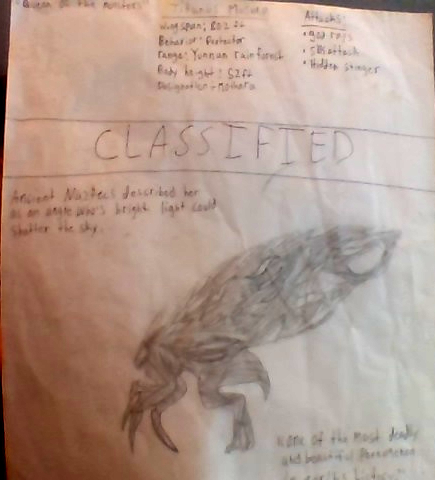 "Queen of the monsters"
Titanus Mosura
Wingspan: 803 ft
Behavior: Protector
range: Yunnan rain forest
Body height: 52 ft
Designation - Mothara
Attacks:
• god rays
• silk attack
• Hidden stinger
CLASSIFIED
Ancient described her
as an angle who's bright light could
shatter the sky.
"one of the most deadly
and beautiful